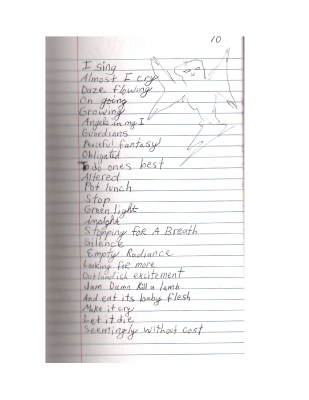 10
I sing
Almost I cry
Daze flowing
On going
Growing
Angels in my I
Guardians
Peaceful fantasy
Obligated
To do ones best
Altered
Pot lunch
Stop
Green light
insight
Stopping for A Breath
Silence
Empty Radiance
Looking for more
Outlandish excitement
Jam Damn Kill a lamb
And eat its baby flesh
Make it cry
Let it die
Seemingly without cost